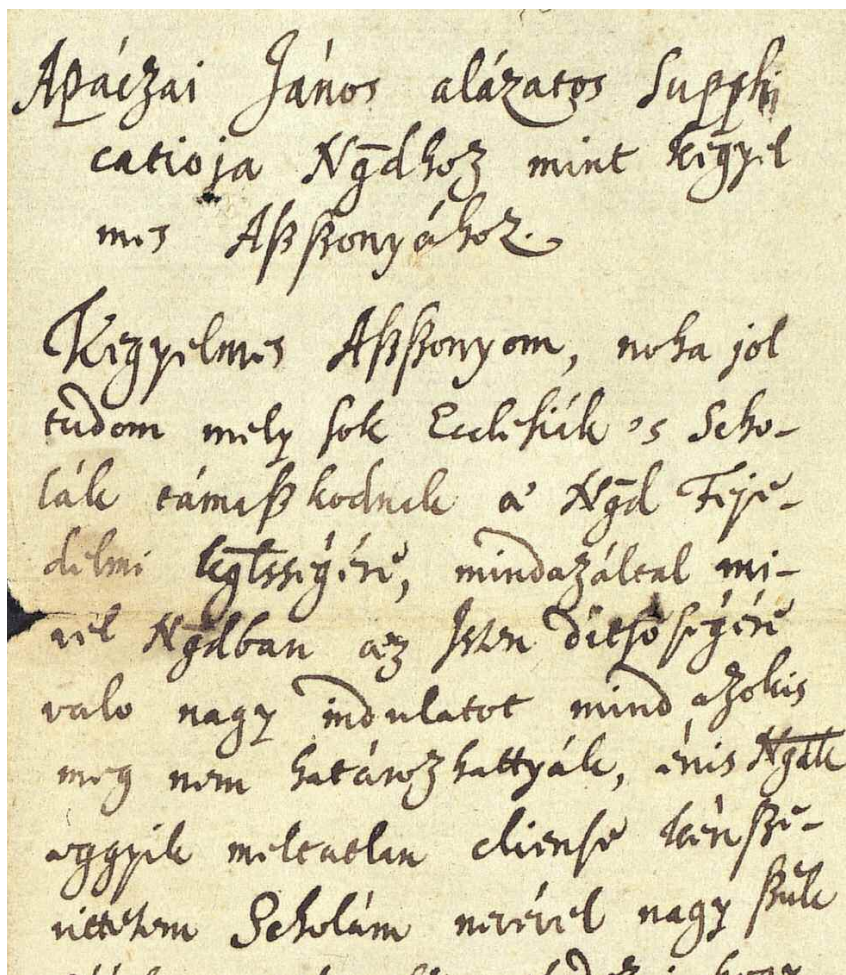 Apáczai János alázatos Suppli
catioja Ngdhoz mint kegyel
mes Aszszonyához.
Kegyelmes Aszszonyom, noha jol
tudom mely sok Ecclesiák 's Scho-
lák támaszkodnak a' Ngd Feje-
delmi kglssségére, mindazáltal mi-
vel Ngdban az Isten ditsőségére
valo nagy indulatot mind azokis
meg nem határozhattyák, énis Ngdk
eggyik meltatlan cliense kénsze-
rittetem Scholám nevével nagy szük